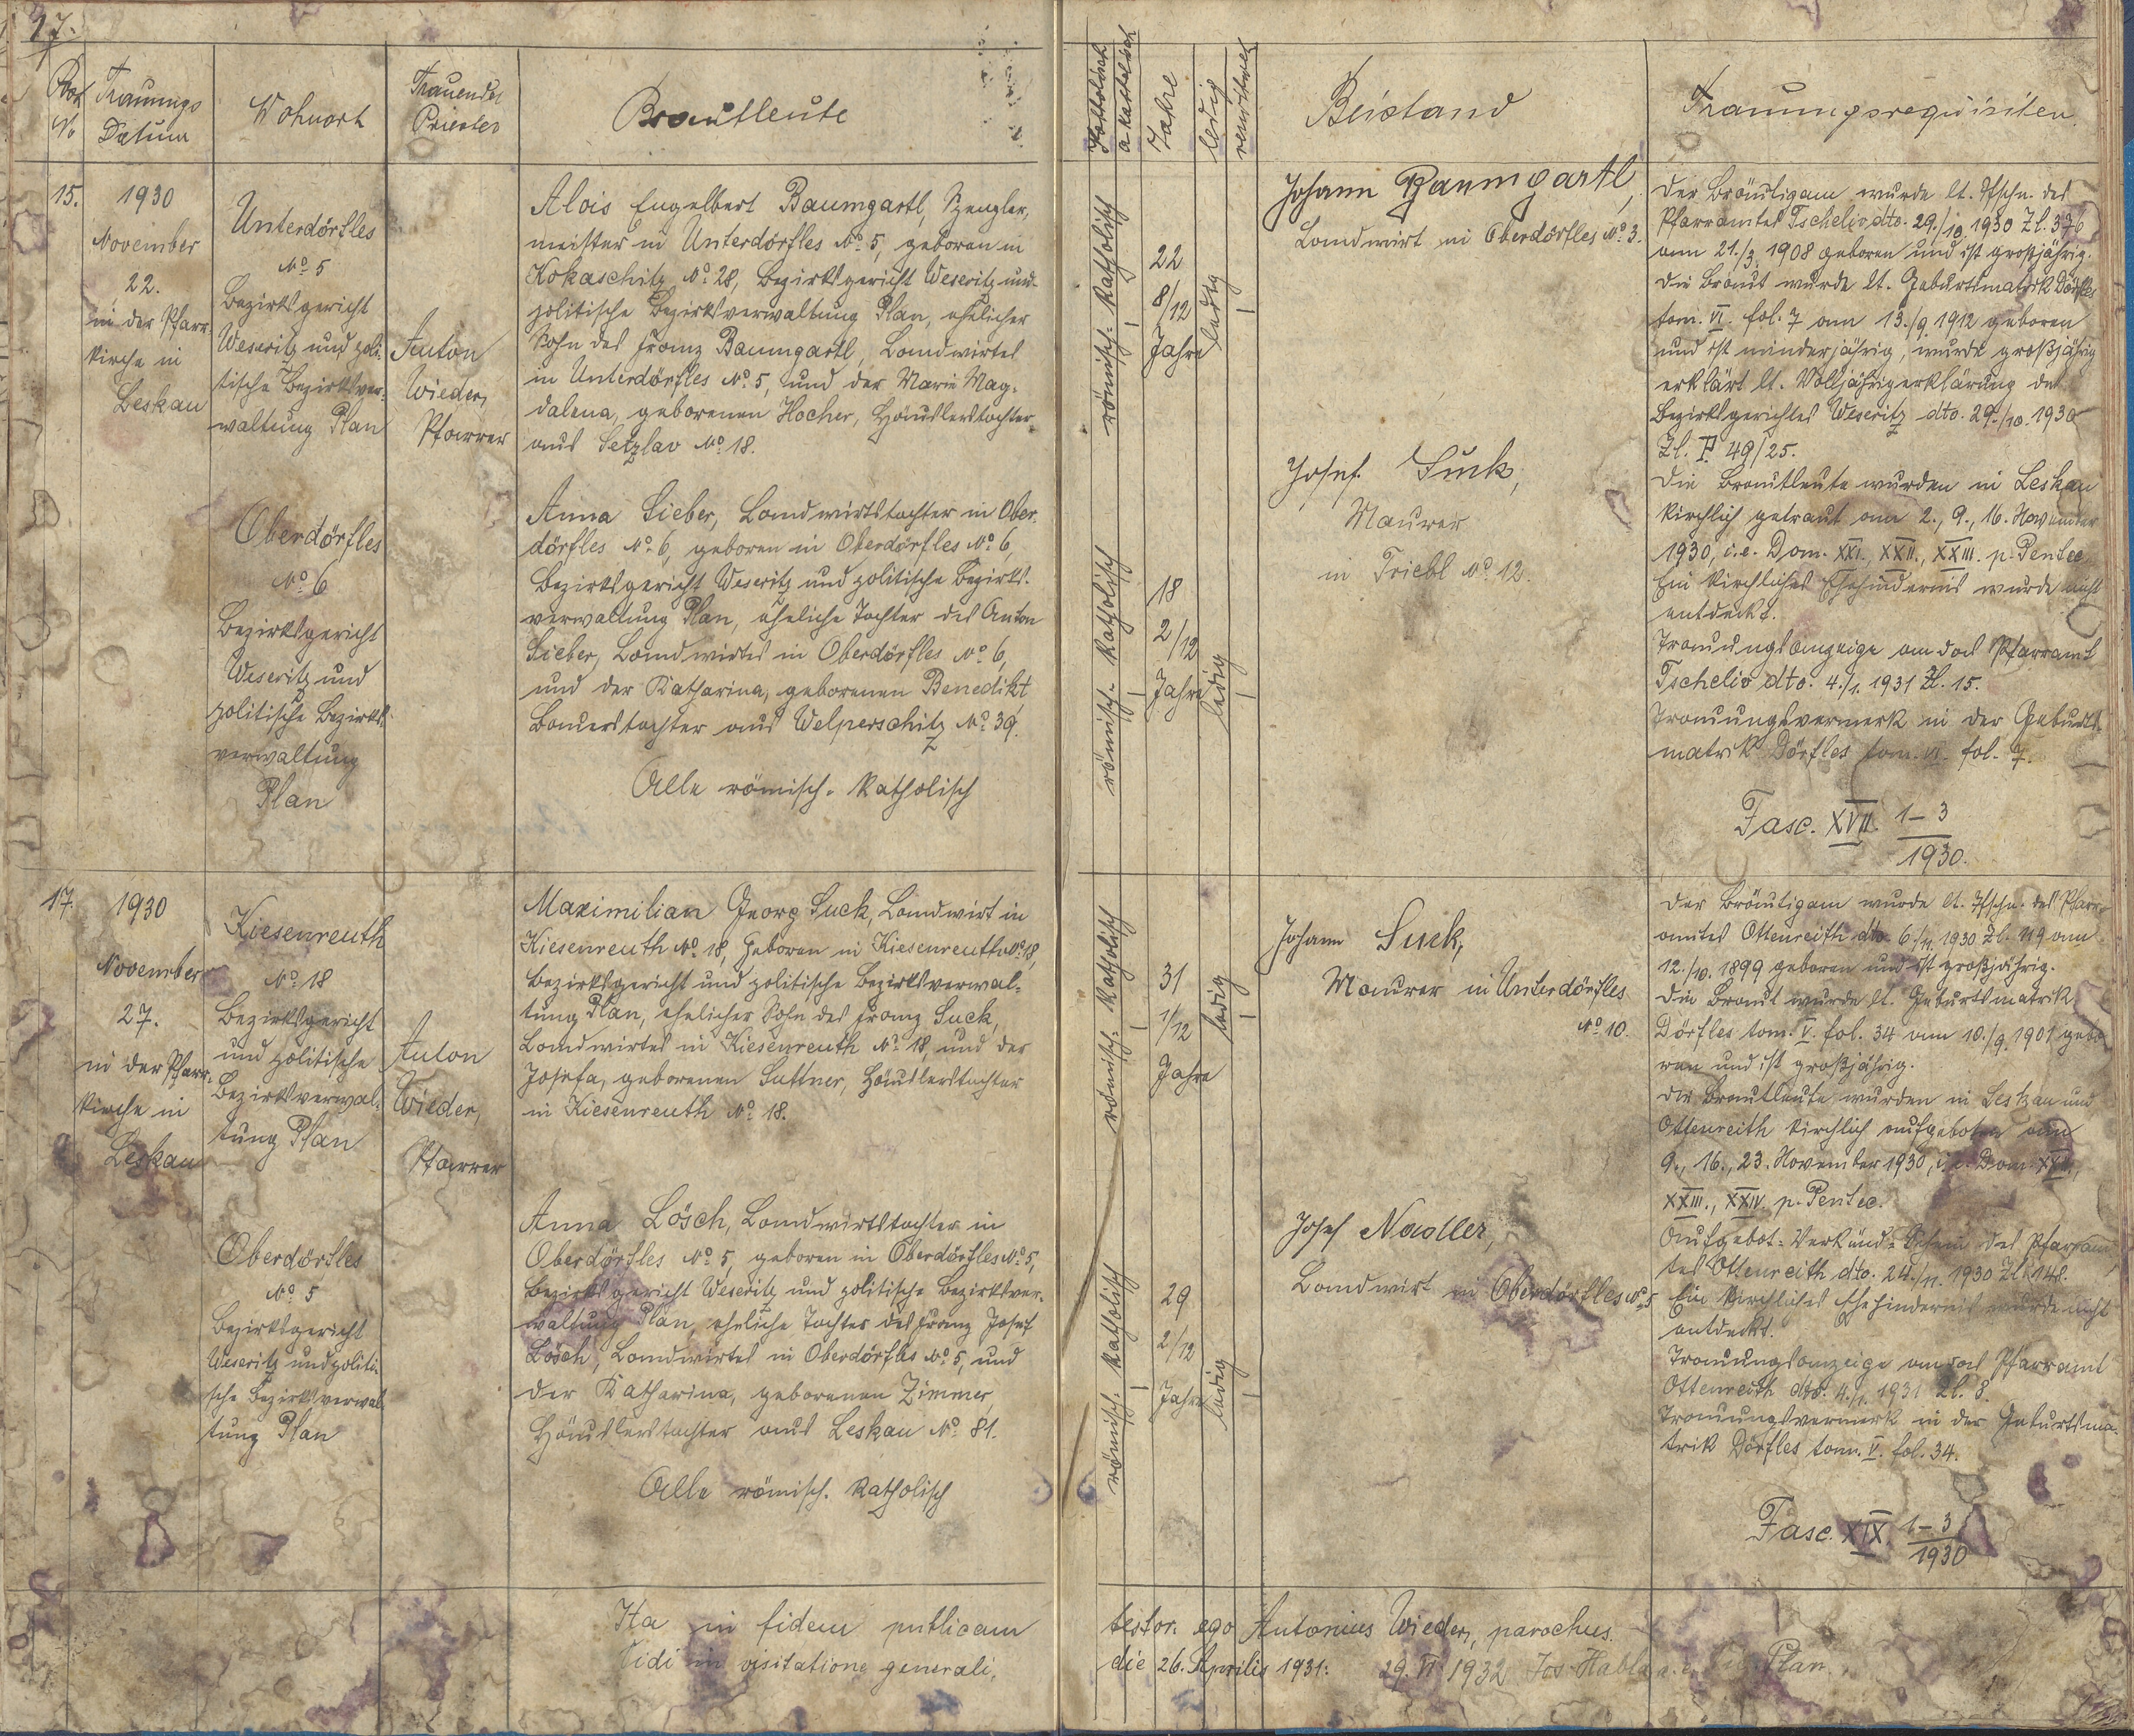 17.
Post
No
Trauungs
Datum
Wohnort
Trauender
Priester
Brautleute
15.
1930
November
22.
in der Pfarr-
kirche in
Leskau
Unterdörfles
No 5
Bezirksgericht
Weseritz und poli-
tische Bezirksver-
waltung Plan
Anton
Wieder,
Pfarrer
Alois Engelbert Baumgartl, Spengler-
meister in Unterdörfles No 5, geboren in
Kokaschitz No 28, Bezirksgericht Weseritz und
politische Bezirksverwaltung Plan, ehelicher
Sohn des Franz Baumgartl, Landwirtes
in Unterdörfles No 5, und der Marie Mag-
dalena, geborenen Hocher, Häuslerstochter
aus Setzlav No 18.
Oberdörfles
No 6
Bezirksgericht
Weseritz und
politische Bezirks-
verwaltung
Plan
Anna Sieber, Landwirtstochter in Ober-
dörfles No 6, geboren in Oberdörfles No 6,
Bezirksgericht Weseritz und politische Bezirks-
verwaltung Plan, eheliche Tochter des Anton
Sieber, Landwirtes in Oberdörfles No 6,
und der Katharina, geborenen Benedikt,
Bauerstochter aus Welperschitz No 39.
Alle römisch-katholisch
17.
1930
November
27.
in der Pfarr-
kirche in
Leskau
Kiesenreuth
No 18
Bezirksgericht
und politische
Bezirksverwal-
tung Plan
Anton
Wieder,
Pfarrer
Maximilian Georg Suck, Landwirt in
Kiesenreuth No 18, geboren in Kiesenreuth No 18,
Bezirksgericht und politische Bezirksverwal-
tung Plan, ehelicher Sohn des Franz Suck,
Landwirtes in Kiesenreuth No 18, und der
Josefa, geborenen Suttner, Häuslerstochter
in Kiesenreuth No 18.
Oberdörfles
No 5
Bezirksgericht
Weseritz und politi-
sche Bezirksverwal-
tung Plan
Anna Lösch, Landwirtstochter in
Oberdörfles No 5, geboren in Oberdörfles No 5,
Bezirksgericht Weseritz und politische Bezirksver-
waltung Plan, eheliche Tochter des Franz Josef
Lösch, Landwirtes in Oberdörfles No 5, und
der Katharina, geborenen Zimmer,
Häuslerstochter aus Leskau No 81.
Alle römisch-katholisch
Ita in fidem publicam
Vidi in visitatione generali,
Katholisch
akatholisch
Jahre
ledig
verwitwet
Beistand
Trauungsrequisiten.
römisch-katholisch
22
8/12
Jahre
ledig
Johann Baumgartl,
Landwirt in Oberdörfles No 3.
römisch-katholisch
18
2/12
Jahre
ledig
Josef Suck,
Maurer
in Triebl No 12.
Der Bräutigam wurde lt. Tfschn. des
Pfarramtes Tscheliv dto. 29./10. 1930 Zl. 376
am 21./3. 1908 geboren und ist großjährig.
Die Braut wurde lt. Geburtsmatrik Dörfles
tom. VI. fol. 7 am 13./9. 1912 geboren
und ist minderjährig, wurde großjährig
erklärt lt. Volljährigerklärung des
Bezirksgerichtes Weseritz dto. 29./10. 1930
Zl. P 49/25.
Die Brautleute wurden in Leskau
kirchlich getraut am 2., 9., 16. November
1930, i.e. Dom. XXI., XXII., XXIII. p. Pentec.
Ein kirchliches Ehehindernis wurde nicht
entdeckt.
Trauungsanzeige an das Pfarramt
Tscheliv dto. 4./1. 1931 Zl. 15.
Trauungsvermerk in der Geburts-
matrik Dörfles tom. VI. fol. 7.
Fasc. XVII. 1-3
1930.
römisch-katholisch
31
1/12
Jahre
ledig
Johann Suck,
Maurer in Unterdörfles
No 10.
römisch-katholisch
29
2/12
Jahre
ledig
Josef Nadler,
Landwirt in Oberdörfles No 5
Der Bräutigam wurde lt. Tfschn. des Pfarr-
amtes Ottenreith dto 6./11. 1930 Zl. 119 am
12./10. 1899 geboren und ist großjährig.
Die Braut wurde lt. Geburtsmatrik
Dörfles tom. V. fol. 34 am 10./9. 1901 gebo-
ren und ist großjährig.
Die Brautleute wurden in Leskau und
Ottenreith kirchlich aufgeboten am
9., 16., 23. November 1930, i.e. Dom. XXII.,
XXIII., XXIV. p. Pentec.
Aufgebot-Verkünd-Schein des Pfarram-
tes Ottenreith dto. 24./11. 1930 Zl. 148.
Ein kirchliches Ehehindernis wurde nicht
entdeckt.
Trauungsanzeige an das Pfarramt
Ottenreith dto. 4./1. 1931 Zl. 8.
Trauungsvermerk in der Geburtsma-
trik Dörfles tom. V. fol. 34.
Fasc. XIX. 1-3
1930
testor. ego Antonius Wieder, parochus.
die 26. Aprilis 1931. 29. VI 1932 Jos. Habla Plan.